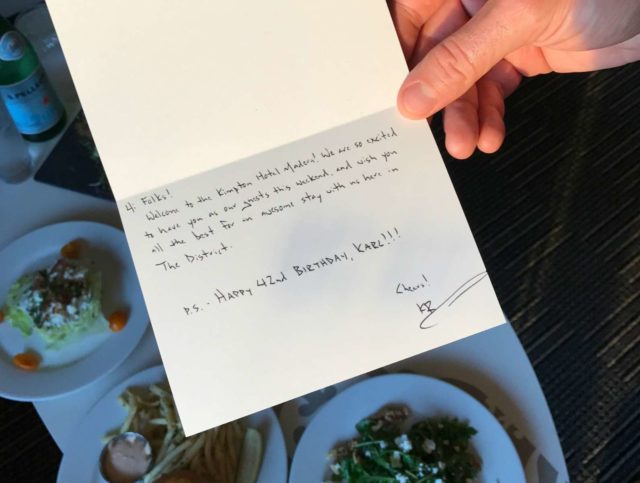 S.PELLEGRINO
4 Folks!
Welcome to the Kimpton Hotel Madera! We are so excited
to have you as our guests this weekend, and wish you
all the best for an awesome stay with us here in
The District.
P.S. - HAPPY 42nd BIRTHDAY, KARL!!!
Cheers!
KR